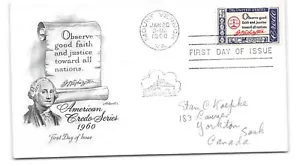 Observe
good faith
and justice
toward all
nations.
G Washington
American
Credo Series
1960
First Day of Issue
MOUNT VERNON
JAN 20
1960
VA.
FIRST DAY OF ISSUE
Observe good
faith and justice
toward all nations
Stan C Koepke
183
Yorkton
Sask
Canada